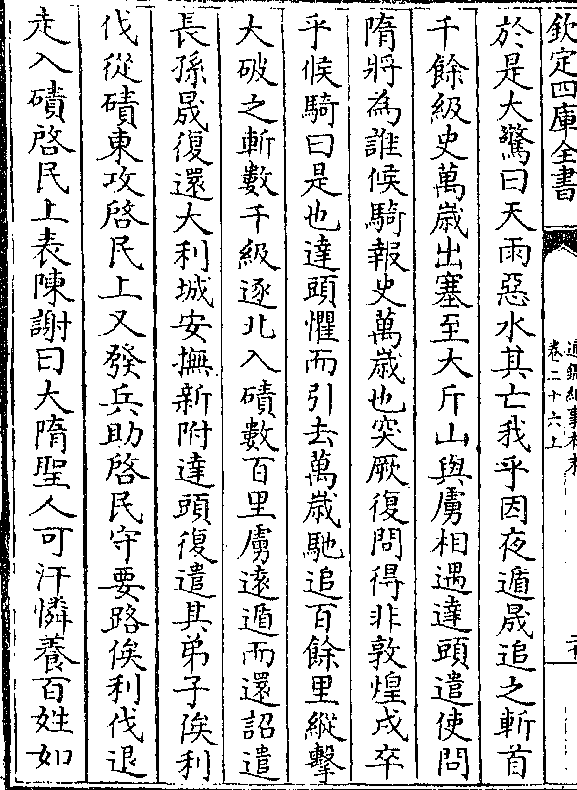 欽定四庫全書
卷二十六上
於是大驚曰天雨惡水其亡我乎因夜遁晟追之斬首
千餘級史萬歳出塞至大斤山與虜相遇達頭遣使問
隋將為誰候騎報史萬歳也突厥復問得非敦煌戍卒
乎候騎曰是也達頭懼而引去萬歳馳追百餘里縱擊
大破之斬數千級逐北入磧數百里虜逺遁而還詔遣
長孫晟復還大利城安撫新附達頭復遣其弟子俟利
伐從磧東攻啓民上又發兵助啓民守要路俟利伐退
走入磧啓民上表陳謝曰大隋聖人可汗憐養百姓如